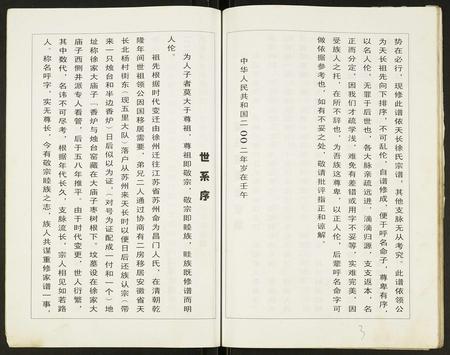 势在必行，现修此谱依天长徐氏宗谱，其他支脉无从考究。此谱依领公
为天长祖先向下排序，不可乱伦，自谱修成，便于呼名命子，尊卑有序，
以名人伦，无罪于后世也，各大脉亲疏远进，滴滴归源，支支返本，名
正而分定，因我们才疏学浅，难免有差错或用字不要等，实难完美，因
受族人之托，在所不辞也，为吾族这尊卑，以正人伦，后辈呼名命字可
做依据参考也，如有不妥之处，敬请批评指正和谅解
中华人民共和国二〇〇二年岁在壬午
3
世系序
为人子者莫大于尊祖，尊祖即敬宗，敬宗即睦族，睦族既修谱而明
人伦。
祖先根据时代变迁由徐州迁往江苏省苏州命为昌门人氏，在清朝乾
隆年间世祖领公因国移居需要，弟兄二人通过协商有二房移居安徽省天
长北杨村街东（现五里大队）落户从苏州来天长时以便日后还族认宗（带
来一只烛台和半边香炉）日后似以为证，（对号为证配成一付和一个）地
址称徐家大庙子（香炉与烛台窑藏在大庙子枣树根下。坟墓设在徐家大
庙子西侧井派专人看管，后于五八年推平。由于时代变更，世人衍繁，
其中数代，名讳不可尽考，根据年代长久，支脉流长，宗人相见如若路
人。称名呼字，实无尊长，今有敬宗睦族之志，族人共谋重修家谱一事，